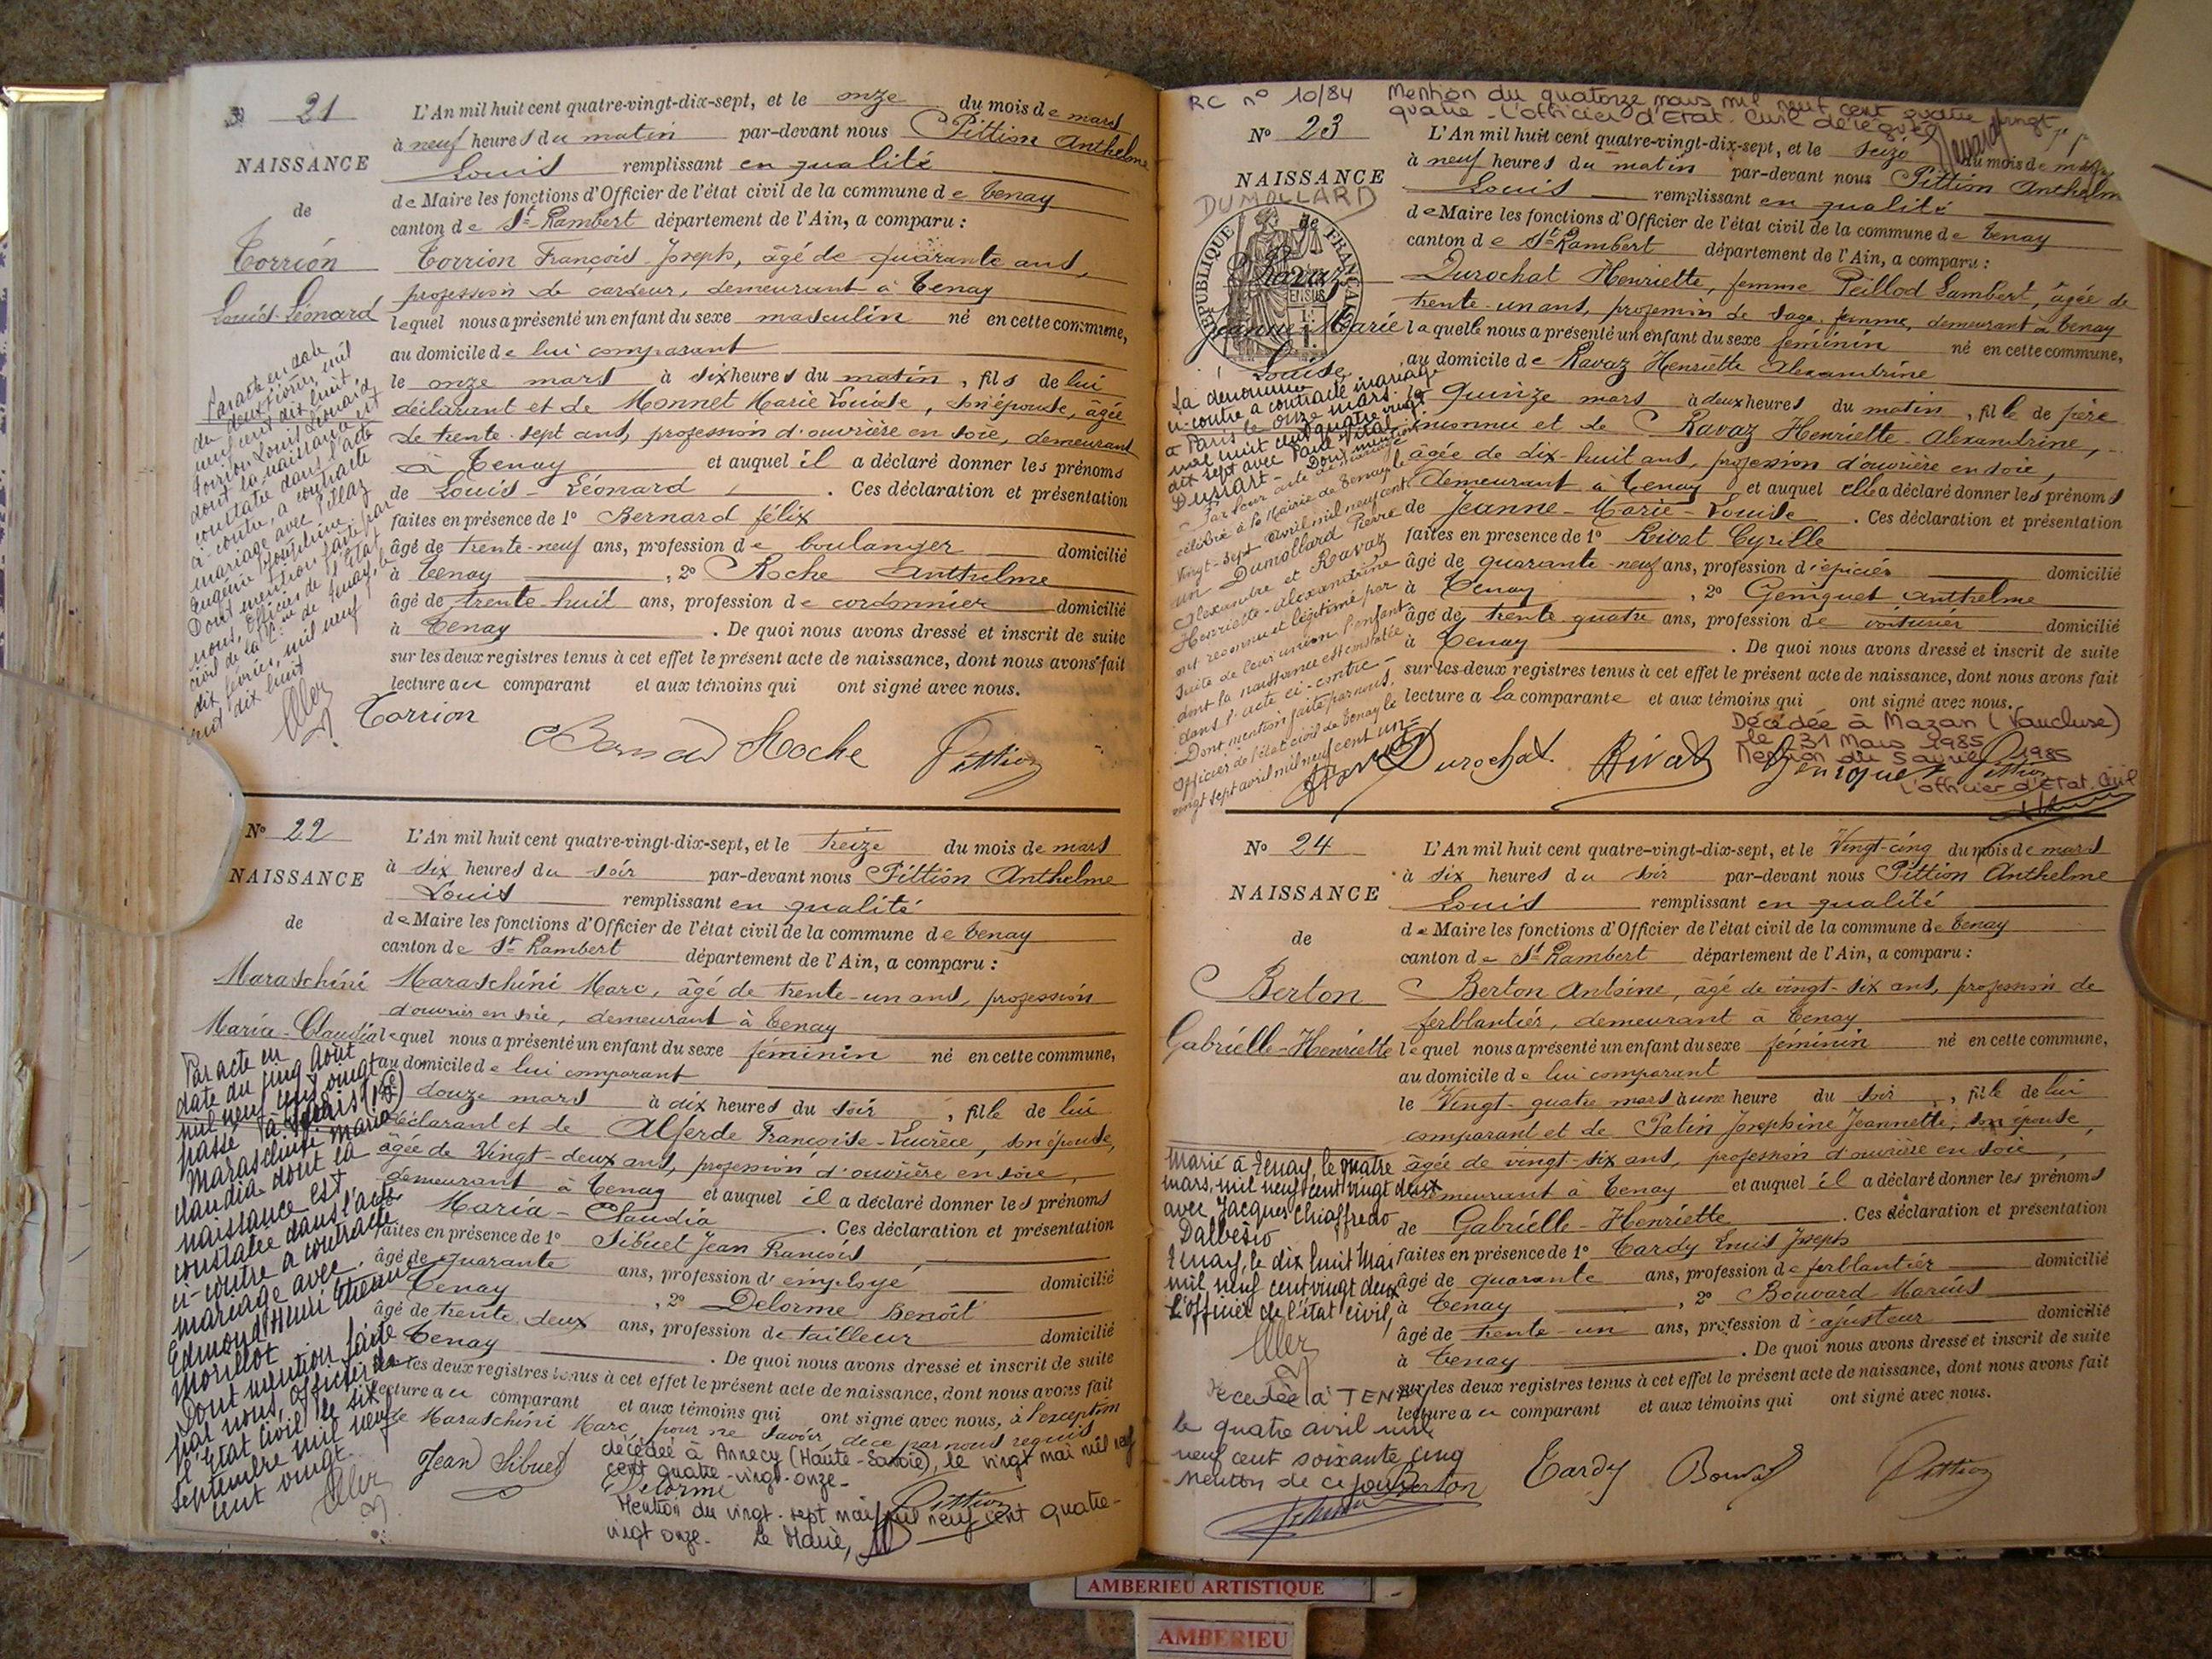 21
NAISSANCE
de
Torrion
Louis-Léonard
L'An mil huit cent quatre-vingt-dix-sept, et le onze du mois de mars
à neuf heures du matin par-devant nous Pittion Anthelme
Louis remplissant en qualité
de Maire les fonctions d'Officier de l'état civil de la commune de Tenay
canton de St Rambert département de l'Ain, a comparu :
Torrion François-Joseph, âgé de quarante ans,
profession de cardeur, demeurant à Tenay
lequel nous a présenté un enfant du sexe masculin né en cette commune,
au domicile de lui comparant
le onze mars à six heures du matin, fils de lui
déclarant et de Monnet Marie Louise, son épouse, âgée
de trente-sept ans, profession d'ouvrière en soie, demeurant
à Tenay et auquel il a déclaré donner les prénoms
de Louis-Léonard. Ces déclaration et présentation
faites en présence de 1° Bernard félix
âgé de trente-neuf ans, profession de boulanger domicilié
à Tenay, 2° Roche Anthelme
âgé de trente-huit ans, profession de cordonnier domicilié
à Tenay. De quoi nous avons dressé et inscrit de suite
sur les deux registres tenus à cet effet le présent acte de naissance, dont nous avons fait
lecture au comparant et aux témoins qui ont signé avec nous.
Par acte en date
du deux février mil
neuf cent dix huit
Torrion Louis Léonard
dont la naissance est
constatée dans l'acte
ci-contre, a contracté
mariage avec
Eugénie Joséphine
Dont mention faite par
nous, officier de l'Etat
civil de la Cne de Tenay, le
dix février, mil neuf
cent dix huit
Torrion
Bernard Roche Pittion
N° 22
NAISSANCE
de
Maraschini
Maria-Claudia
L'An mil huit cent quatre-vingt-dix-sept, et le treize du mois de mars
à six heures du soir par-devant nous Pittion Anthelme
Louis remplissant en qualité
de Maire les fonctions d'Officier de l'état civil de la commune de Tenay
canton de St Rambert département de l'Ain, a comparu :
Maraschini Marc, âgé de trente-un ans, profession
d'ouvrier en soie, demeurant à Tenay
lequel nous a présenté un enfant du sexe féminin né en cette commune,
au domicile de lui comparant
douze mars à dix heures du soir, fille de lui
déclarant et de Alferde Françoise-Lucrèce, son épouse,
âgée de Vingt-deux ans, profession d'ouvrière en soie,
demeurant à Tenay et auquel il a déclaré donner les prénoms
Maria-Claudia. Ces déclaration et présentation
faites en présence de 1° Sibuet Jean François,
âgé de quarante ans, profession d'employé domicilié
Tenay, 2° Delorme Benoît
âgé de trente deux ans, profession de tailleur domicilié
Tenay. De quoi nous avons dressé et inscrit de suite
sur les deux registres tenus à cet effet le présent acte de naissance, dont nous avons fait
lecture au comparant et aux témoins qui ont signé avec nous, à l'exception
de Maraschini Marc, pour ne savoir, de ce par nous requis
Par acte en
date du cinq Août
mil neuf cent vingt
passé à Paris
Maraschini Maria
Claudia dont la
naissance est
constatée dans l'acte
ci-contre a contracté
mariage avec
Edmond Henri Etienne
Morillot
Dont mention faite
par nous, officier de
l'Etat civil, le six
septembre mil neuf
cent vingt
Jean Sibuet
décédée à Annecy (Haute-Savoie), le vingt mai mil neuf
cent quatre-vingt-onze-
Delorme Pittion
Mention du vingt-sept mai mil neuf cent quatre-
vingt onze. Le Maire,
RC n° 10/84 Mention du quatorze mars mil neuf cent quatre vingt
quatre - L'officier d'Etat Civil délégué
N° 23
NAISSANCE
DUMOLLARD
de
RÉPUBLIQUE FRANÇAISE
Ravaz
Jeanne-Marie
Louise
L'An mil huit cent quatre-vingt-dix-sept, et le seize du mois de mars
à neuf heures du matin par-devant nous Pittion Anthelm
Louis remplissant en qualité
de Maire les fonctions d'Officier de l'état civil de la commune de Tenay
canton de St Rambert département de l'Ain, a comparu :
Durochat Henriette, femme Peillod Lambert, âgée de
trente-un ans, profession de sage-femme, demeurant à Tenay
laquelle nous a présenté un enfant du sexe féminin né en cette commune,
au domicile de Ravaz Henriette Alexandrine
le quinze mars à deux heures du matin, fille de père
inconnu et de Ravaz Henriette-Alexandrine,
âgée de dix-huit ans, profession d'ouvrière en soie,
demeurant à Tenay et auquel elle a déclaré donner les prénoms
de Jeanne-Marie-Louise. Ces déclaration et présentation
faites en présence de 1° Rivat Cyrille
âgé de quarante-neuf ans, profession d'épicier domicilié
à Tenay, 2° Geniquet Anthelme
âgé de trente quatre ans, profession de voiturier domicilié
à Tenay. De quoi nous avons dressé et inscrit de suite
sur les deux registres tenus à cet effet le présent acte de naissance, dont nous avons fait
lecture a la comparante et aux témoins qui ont signé avec nous.
La dénommée
ci-contre a contracté mariage
à Paris le onze mars
mil huit cent quatre vingt
dix sept avec Paul Vital
Dussart - Dont mention
Par leur acte de mariage
célébré à la Mairie de Tenay le
vingt-sept avril mil neuf cent
un Dumollard Pierre
Alexandre et Ravaz
Henriette-Alexandrine
ont reconnu et légitimé par
suite de leur union l'enfant
dont la naissance est constatée
dans l'acte ci-contre -
Dont mention faite par nous,
officier de l'état civil de Tenay le
vingt sept avril mil neuf cent un =
Décédée à Mazan (Vaucluse)
le 31 Mars 1985
Mention du 5 avril 1985
L'officier d'Etat Civil
Durochat Rivat Geniquet Pittion
N° 24
NAISSANCE
de
Berton
Gabrielle-Henriette
L'An mil huit cent quatre-vingt-dix-sept, et le Vingt-cinq du mois de mars
à six heures du soir par-devant nous Pittion Anthelme
Louis remplissant en qualité
de Maire les fonctions d'Officier de l'état civil de la commune de Tenay
canton de St Rambert département de l'Ain, a comparu :
Berton Antoine, âgé de vingt-six ans, profession de
ferblantier, demeurant à Tenay
lequel nous a présenté un enfant du sexe féminin né en cette commune,
au domicile de lui comparant
le Vingt-quatre mars à une heure du soir, fille de lui
comparant et de Patin Josephine Jeannette, son épouse,
âgée de vingt-six ans, profession d'ouvrière en soie,
demeurant à Tenay et auquel il a déclaré donner les prénoms
de Gabrielle-Henriette. Ces déclaration et présentation
faites en présence de 1° Tardy Louis Joseph
âgé de quarante ans, profession de ferblantier domicilié
à Tenay, 2° Bouvard Marius
âgé de trente-un ans, profession d'ajusteur domicilié
à Tenay. De quoi nous avons dressé et inscrit de suite
sur les deux registres tenus à cet effet le présent acte de naissance, dont nous avons fait
lecture au comparant et aux témoins qui ont signé avec nous.
Marié à Tenay, le quatre
mars, mil neuf cent vingt deux
avec Jacques Chiaffredo
Dalbesio
Tenay, le dix huit Mai
mil neuf cent vingt deux
L'officier de l'état civil,
Décédée à TENAY
le quatre avril mil
neuf cent soixante cinq
Mention de ce jour
Berton Tardy Bouvard Pittion
AMBERIEU ARTISTIQUE
AMBERIEU